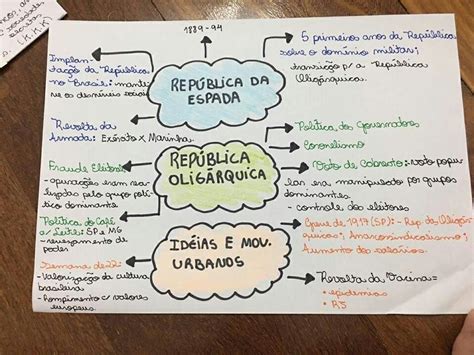 1889-94
Implan-
tação da República
no Brasil: mante
ve os desníveis sociais
REPÚBLICA DA
ESPADA
5 primeiros anos da República
sobre o domínio militar;
transição p/ a República
Oligárquica
Revolta da
Armada: Exército x Marinha.
Fraude Eleitoral
- apurações eram rea-
lizadas pelo grupo polí-
tico dominante
Política do Café
c/ Leite: SP e MG
- revezamento de
poder
REPÚBLICA
OLIGÁRQUICA
Política dos Governadores
Coronelismo
Voto de Cabresto: voto popu
lar era manipulado por grupos
dominantes.
- controle dos eleitores
Semana de 22:
- Valorização da cultura
brasileira
- Rompimento c/ valores
europeus
IDÉIAS E MOV.
URBANOS
Greve de 1917 (SP): - Rep. da Oligár
quica; Anarcosindicalismo;
Aumento dos salários.
Revolta da Vacina=
• epidemias
• RJ
(K.K.K)